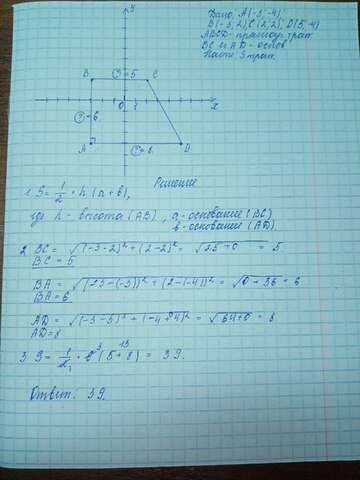 Дано: A(-3;-4)
B(-3;2), C(2;2), D(5;-4)
ABCD - прямоуг. трап.
BC и AD - основ.
Найти S трап.
y
B ?=5 C
?=6
0 1 x
A ?=8 D
Решение
1. S = 1/2 · h (a+b),
где h - высота (AB), a - основание (BC)
b - основание (AD)
2. BC = √(-3-2)² + (2-2)² = √25+0 = 5
BC = 5
BA = √(-3-(-3))² + (2-(-4))² = √0+36 = 6
BA = 6
AD = √(-3-5)² + (-4+4)² = √64+0 = 8
AD = 8
3 S = 1/2 · 6 (5+8) = 39.
Ответ: 39.